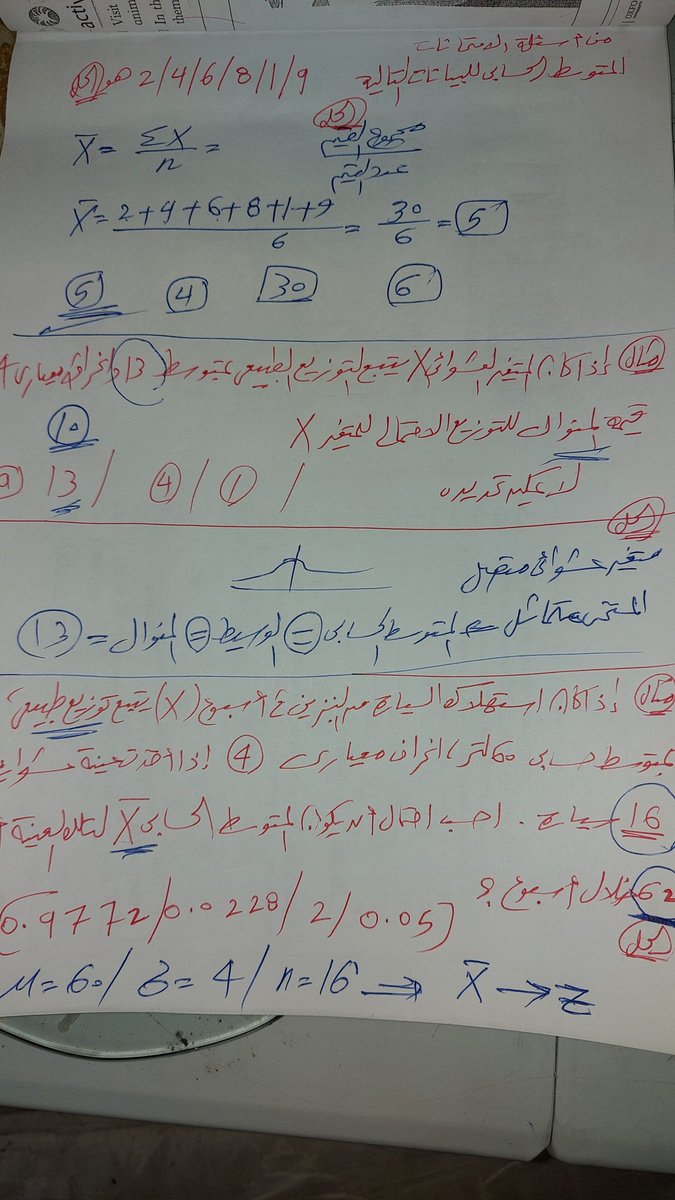 activ
Visit
anim
In th
them
OXFO
من أسئلة الامتحانات
المتوسط الحسابي للبيانات التالية 2/4/6/8/1/9 هو
الحل
X̄ = ΣX/n = مجموع القيم / عدد القيم
X̄ = 2+4+6+8+1+9 / 6 = 30/6 = 5
5 4 30 6
مثال إذا كان المتغير العشوائي X يتبع التوزيع الطبيعي بمتوسط 13 وانحراف معياري 4
قيمة المنوال للتوزيع الاحتمالي للمتغير X
10
13 / 4 / 1 / لا يمكن تحديده
الحل
متغير عشوائي متصل
المنحنى متماثل المتوسط الحسابي = الوسيط = المنوال = 13
مثال إذا كان استهلاك السياح من البنزين في أسبوع (X) يتبع توزيع طبيعي
بمتوسط حسابي 60 لتر، انحراف معياري 4 إذا أخذت عينة
16 سياح. احسب احتمال أن يكون المتوسط الحسابي X̄ لتلك العينة
62 خلال أسبوع ؟
0.9772/0.0228/2/0.05
الحل
μ=60/ σ=4/ n=16 ⟹ X̄ → Z